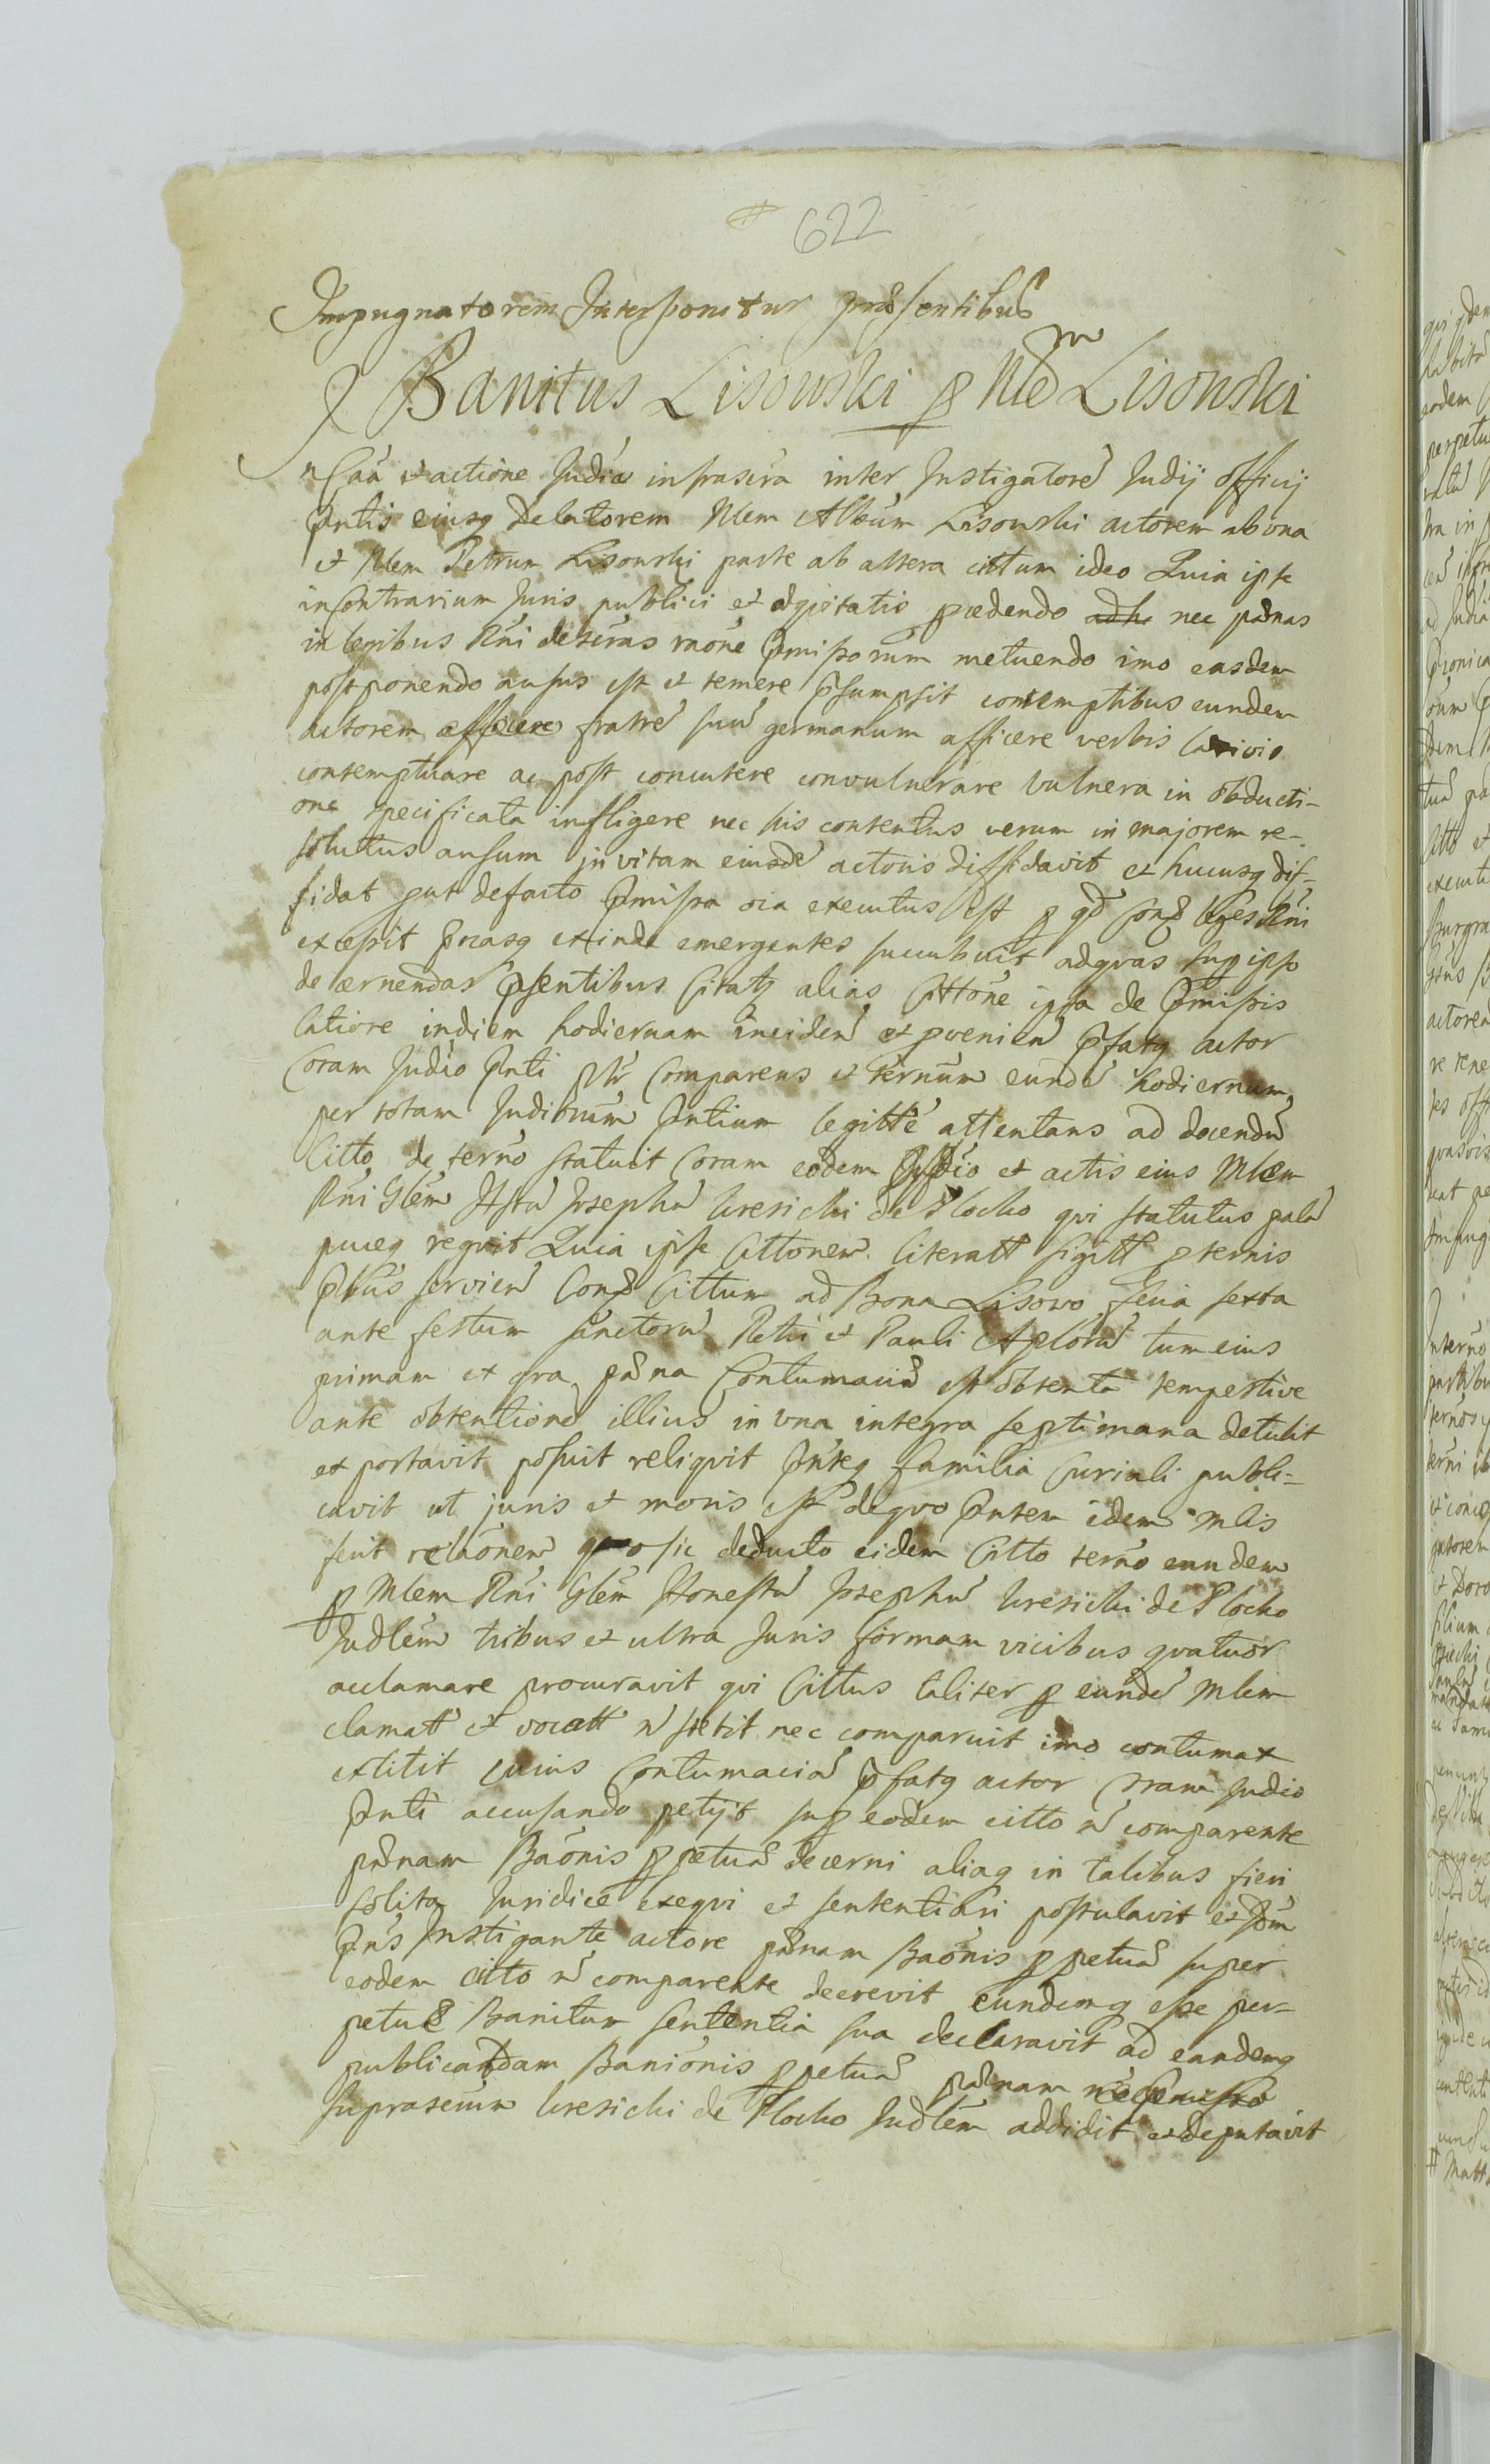 622
Impugnatorem Interponitur praesentibus
Banitus Lisowski p Nlem Lisowski
In Caa et actione Judica infrascra inter Instigatore Judij officij
Pntis eiusq Delatorem Nlem Album Lisowski actorem ab una
et Nlem Petrum Lisowski parte ab altera cittum ideo Quia ipse
in Contrarium Juris publici et aeqvitatis praedendo adh nec paenas
in legibus Rni descras raone Pmissorum metuendo imo easdem
postponendo ausus est et temere Psumpsit contemptibus eundem
actorem afficere fratre suu germanum afficere verbis
contemptuare ac post concutere convulnerare vulnera in obducti-
one specificata infligere nec his contentus verum in majorem re-
solutus ausum in vitam eiusde actoris diffidavit et hucusq dif-
fidat put defacto Pmissa oia executus est p qd Leges Rni
excessit exinde emergentes succubuit ad qvas sup ipso
decernendas Psentibus Citatq alias Cittone ipsa de Pmissis
latiore in diem hodiernam inciden et pvenien Pfatq actor
Coram Judio Pnti Comparens et ternum eunde hodiernum
per totam Judiorum Pntium legitte attentans ad docendu
Citto de terno statuit Coram eodem Judio et actis eius Mlem
Rni Glem Hstu Josephu Uresicki de Plocko qvi statutus pala
puceq reqvit Quia ipse Cittonem literatt sigitt p ternis
Pbus servien Cittum ad Bona Lisowo feria sexta
ante festum sanctoru Petri et Pauli Aploru tum eius
primam et gra paena Contumacia est obtenta tempestive
ante obtentione illius in una integra septimana detulit
et portavit posuit reliqvit Pnteq familia Curiali publi-
cavit ut juris et moris est de qvo Pntem idem Mlis
fecit relaonem qvo sic deducto eidem Citto terno eundem
p Mlem Rni Glem Honestu Josephu Uresicki de Plocko
Judlem tribus et ultra Juris formam vicibus qvatuor
acclamare procuravit qvi Cittus taliter p eunde Mlem
clamatt et vocatt n stetit nec comparuit imo contumax
extitit cuius Contumacia Pfatq actor Coram Judio
Pnti accusando petijt sup eodem citto n comparente
paenam Baonis ppetua decerni aliaq in talibus fieri
solita Juridice exeqvi et sententiari postulavit et
Pns Instigante actore paenam Baonis ppetua super
eodem citto n comparente decrevit eundemq esse per-
petue Banitum sententia sua declaravit ad eandemq
publicandam Banionis ppetua paenam
suprascrum Uresicki de Plocko Judlem addidit et deputavit